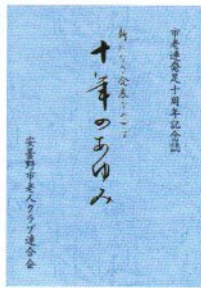 市老連発足十周年記念誌
新たなる発展をめざして
十年のあゆみ
安曇野市老人クラブ連合会